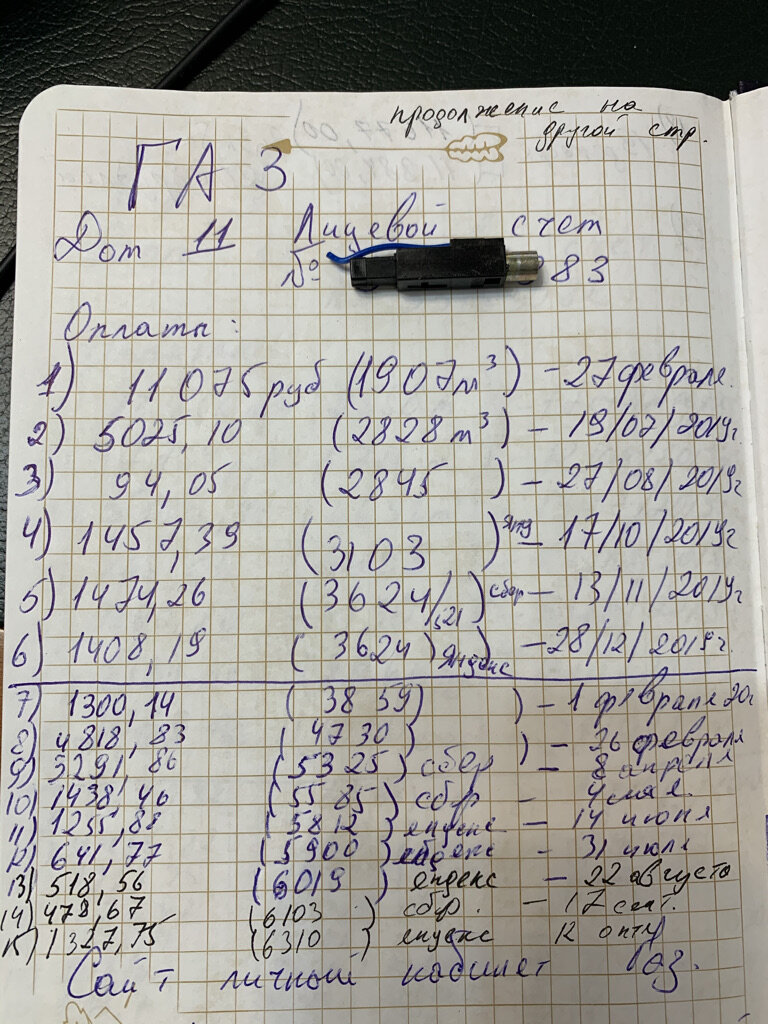 продолжение на
другой стр.
ГАЗ
Дом 11 Лицевой счет
№ 383
Оплаты:
1) 11075 руб (1907 м³) - 27 февраля.
2) 5025,10 (2828 м³) - 19/07/2019г.
3) 94,05 (2845 ) - 27/08/2019г
4) 1457,39 (3103 ) - 17/10/2019г
5) 1474,26 (3624/521) сбер - 13/11/2019г
6) 1408,19 (3624) яндекс - 28/12/2019г.
7) 1300,14 (3859) ) - 1 февраля 20г
8) 4818,83 (4730) ) - 26 февраля
9) 3291,86 (5325) сбер - 8 апреля
10) 1438,46 (5585) сбер - 4 мая
11) 1255,88 (5812) яндекс - 14 июня
12) 641,77 (5900) яндекс - 31 июля
13) 518,56 (6019) яндекс - 22 августа
14) 472,67 (6103 ) сбер. - 17 сент.
15) 1327,75 (6310 ) яндекс 12 окт
Сайт личный кабинет Газ.